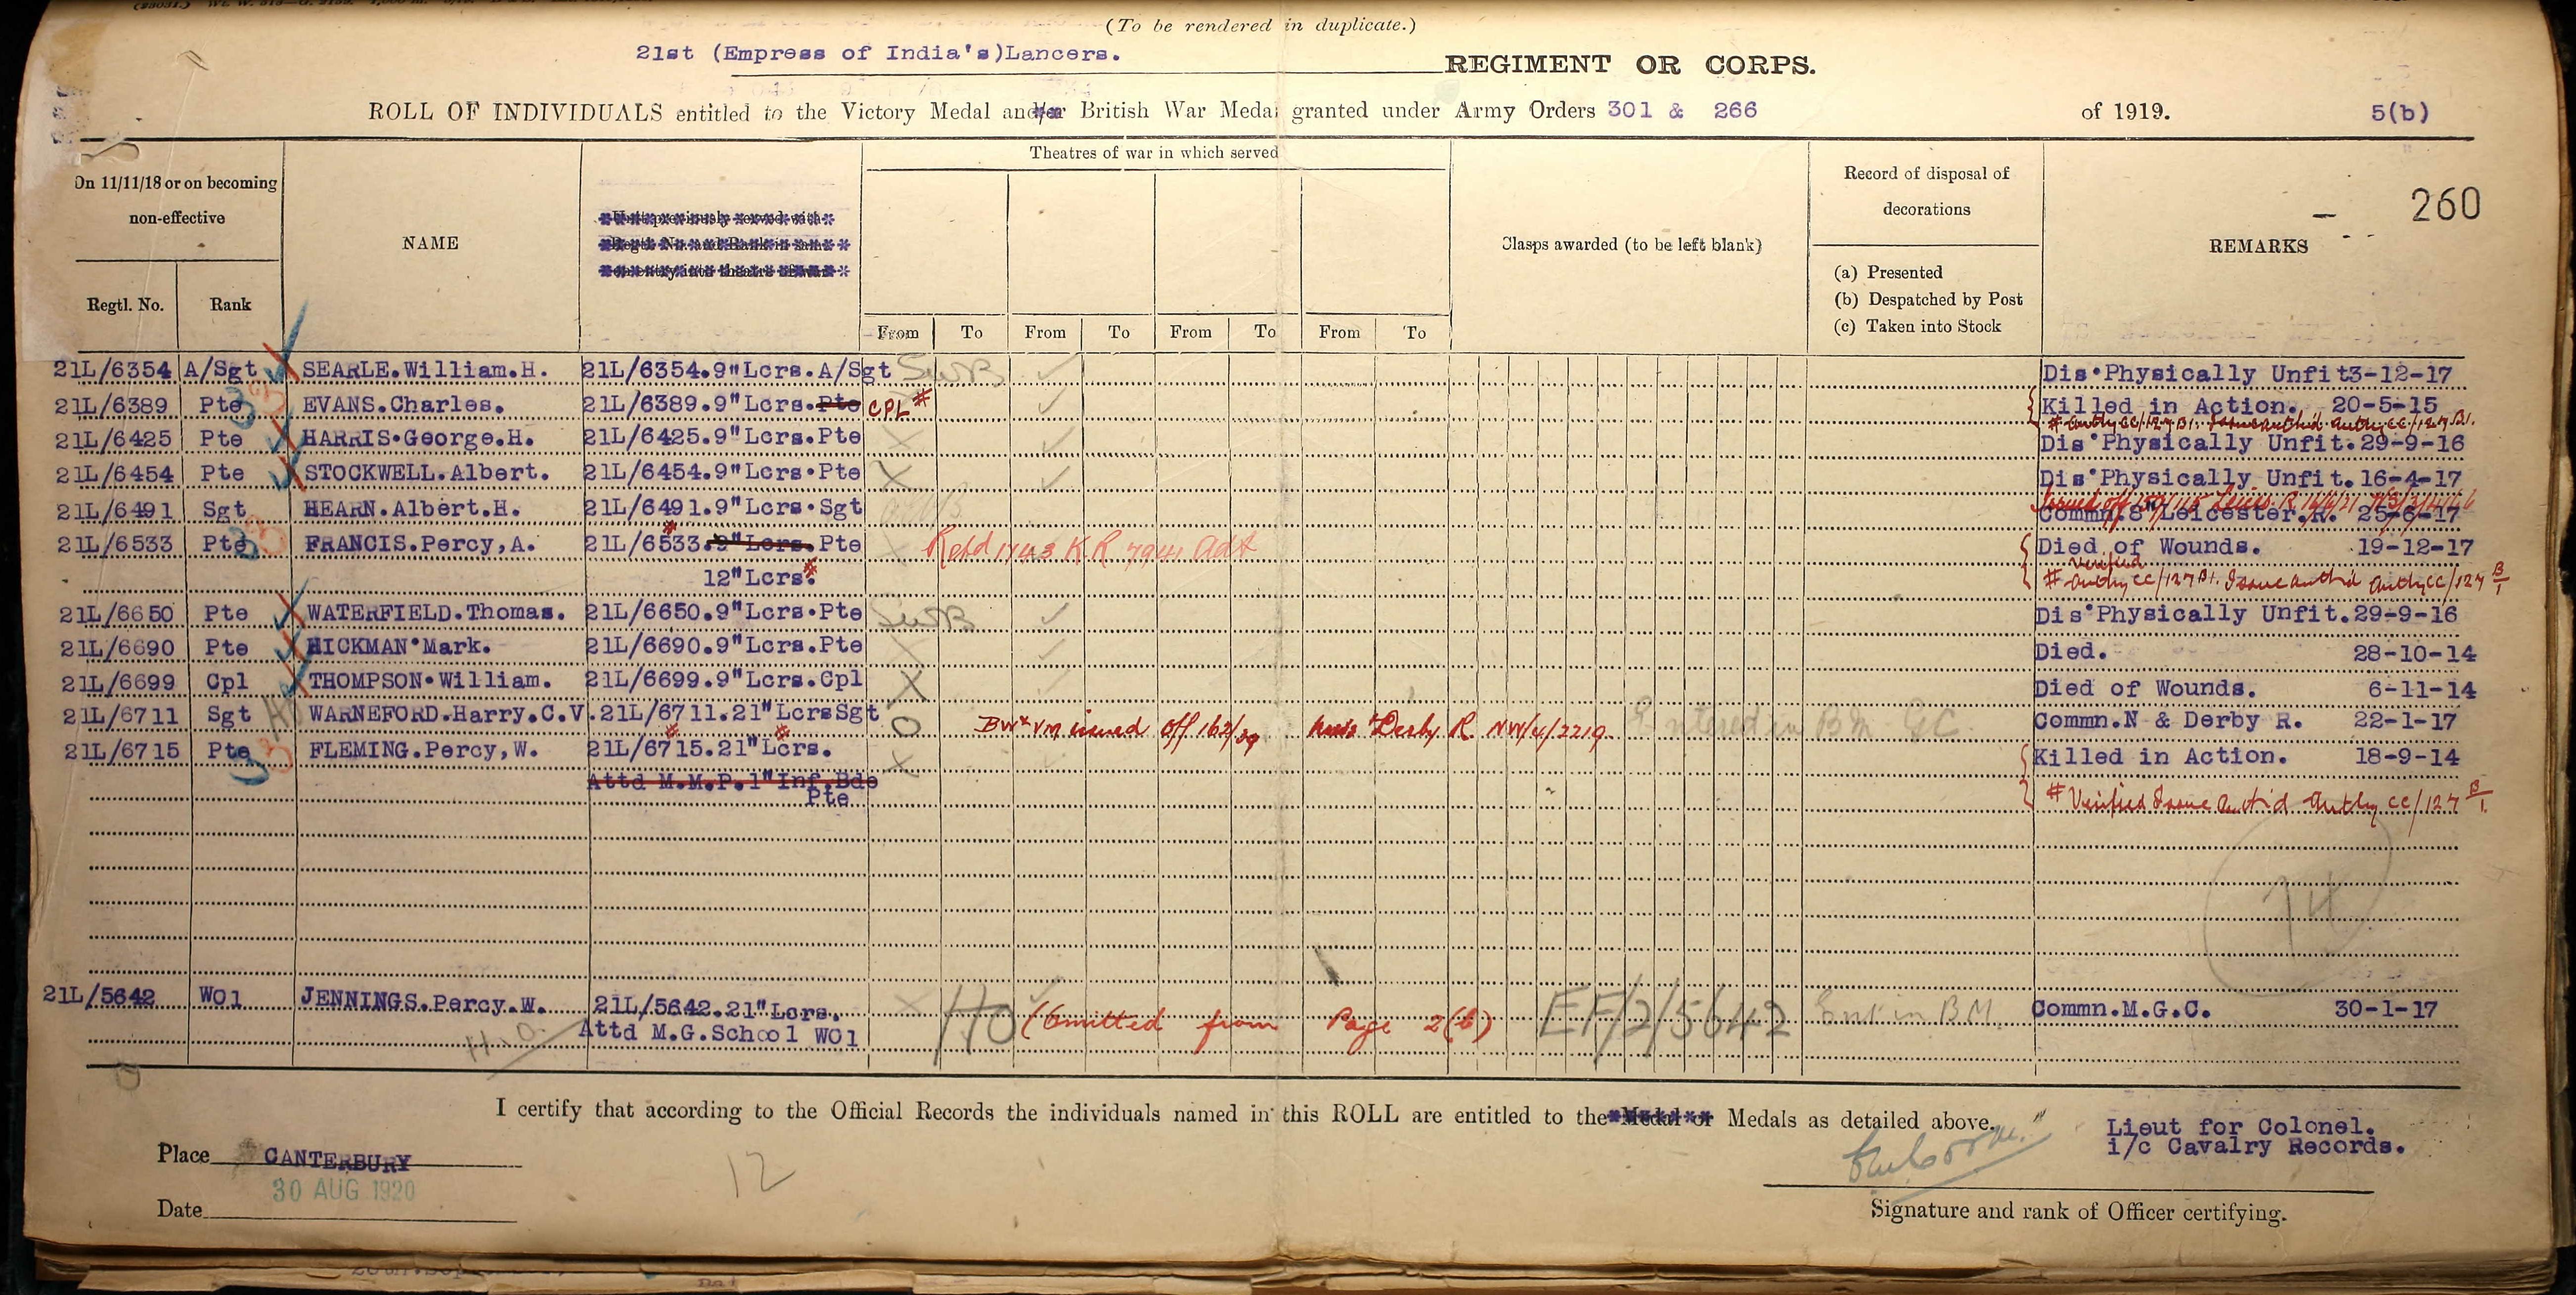 (To be rendered in duplicate.)
21st (Empress of India's)Lancers.
REGIMENT OR CORPS.
ROLL OF INDIVIDUALS entitled to the Victory Medal and British War Medal granted under Army Orders 301 & 266 of 1919. 5(b)
Theatres of war in which served
On 11/11/18 or on becoming non-effective
Record of disposal of decorations
260
NAME
Clasps awarded (to be left blank)
REMARKS
(a) Presented
(b) Despatched by Post
(c) Taken into Stock
Regtl. No. Rank
From To From To From To From To
21L/6354 A/Sgt SEARLE.William.H. 21L/6354.9"Lcrs.A/Sgt SWB Dis.Physically Unfit3-12-17
21L/6389 Pte EVANS.Charles. 21L/6389.9"Lcrs.Pte CPL # Killed in Action. 20-5-15
# Authy CC/127 B1. Issue auth'd Authy CC/127 B1.
21L/6425 Pte HARRIS.George.H. 21L/6425.9"Lcrs.Pte X Dis.Physically Unfit.29-9-16
21L/6454 Pte STOCKWELL.Albert. 21L/6454.9"Lcrs.Pte X Dis.Physically Unfit.16-4-17
21L/6491 Sgt HEARN.Albert.H. 21L/6491.9"Lcrs.Sgt Commn.8"Leicester.R. 25-6-17
21L/6533 Pte FRANCIS.Percy,A. 21L/6533.9"Lcrs.Pte Retd 1743 K.R 1941 Adt Died of Wounds. 19-12-17
12"Lcrs. Verified
# Authy CC/127 B1. Issue auth'd Authy CC/127 B/1
21L/6650 Pte WATERFIELD.Thomas. 21L/6650.9"Lcrs.Pte SWB Dis.Physically Unfit.29-9-16
21L/6690 Pte HICKMAN.Mark. 21L/6690.9"Lcrs.Pte Died. 28-10-14
21L/6699 Cpl THOMPSON.William. 21L/6699.9"Lcrs.Cpl X Died of Wounds. 6-11-14
21L/6711 Sgt WARNEFORD.Harry.C.V.21L/6711.21"LcrsSgt O BW & VM issued Off 162/ Derby R. NW/4/2219. Entered in BM GC Commn.N & Derby R. 22-1-17
21L/6715 Pte FLEMING.Percy,W. 21L/6715.21"Lcrs. X Killed in Action. 18-9-14
Attd M.M.P.1"Inf.Bde
Pte # Verified Issue Auth'd Authy CC/127 B/1.
14
21L/5642 WO1 JENNINGS.Percy.W. 21L/5642.21"Lcrs. X HO (Omitted from Page 2(b) EF/2/5642 Ent in B.M. Commn.M.G.C. 30-1-17
H.O. Attd M.G.School WO1
I certify that according to the Official Records the individuals named in this ROLL are entitled to the Medals as detailed above.
Lieut for Colonel.
i/c Cavalry Records.
Place CANTERBURY
12
30 AUG 1920
Date
Signature and rank of Officer certifying.